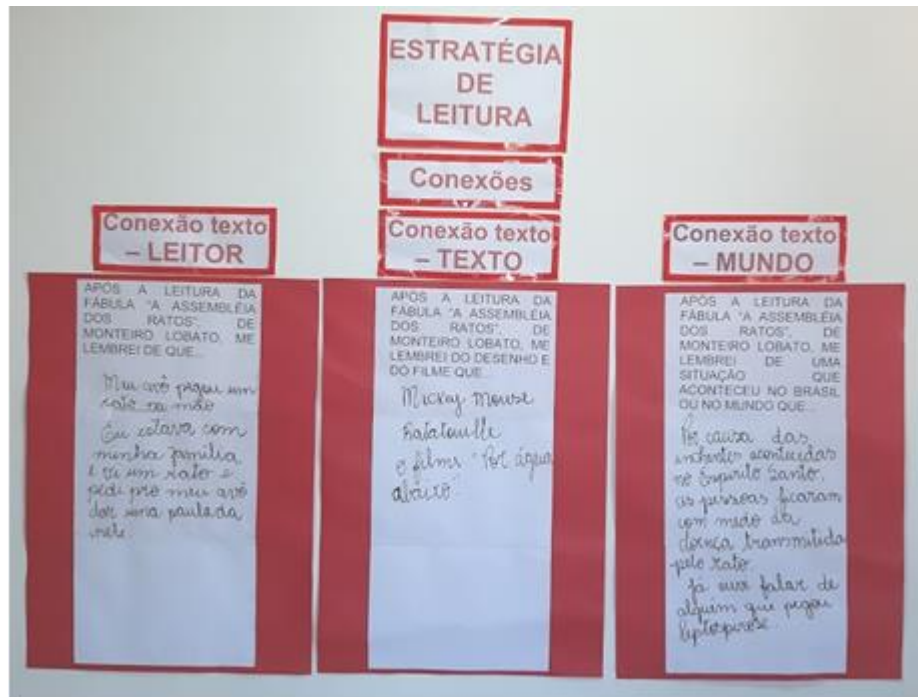 ESTRATÉGIA
DE
LEITURA
Conexões
Conexão texto
– LEITOR
APÓS A LEITURA DA
FÁBULA "A ASSEMBLÉIA
DOS RATOS", DE
MONTEIRO LOBATO, ME
LEMBREI DE QUE...
Meu avô pegou um
rato na mão
Eu estava com
minha família
e vi um rato e
pedi pro meu avô
dar uma paulada
nele.
Conexão texto
– TEXTO
APÓS A LEITURA DA
FÁBULA "A ASSEMBLÉIA
DOS RATOS", DE
MONTEIRO LOBATO, ME
LEMBREI DO DESENHO E
DO FILME QUE...
Mickey Mouse
Ratatouille
o filme "Por água
abaixo"
Conexão texto
– MUNDO
APÓS A LEITURA DA
FÁBULA "A ASSEMBLÉIA
DOS RATOS", DE
MONTEIRO LOBATO, ME
LEMBREI DE UMA
SITUAÇÃO QUE
ACONTECEU NO BRASIL
OU NO MUNDO QUE...
Por causa das
enchentes acontecidas
no Espírito Santo,
as pessoas ficaram
com medo da
doença transmitida
pelo rato.
Já ouvi falar de
alguém que pegou
leptospirose